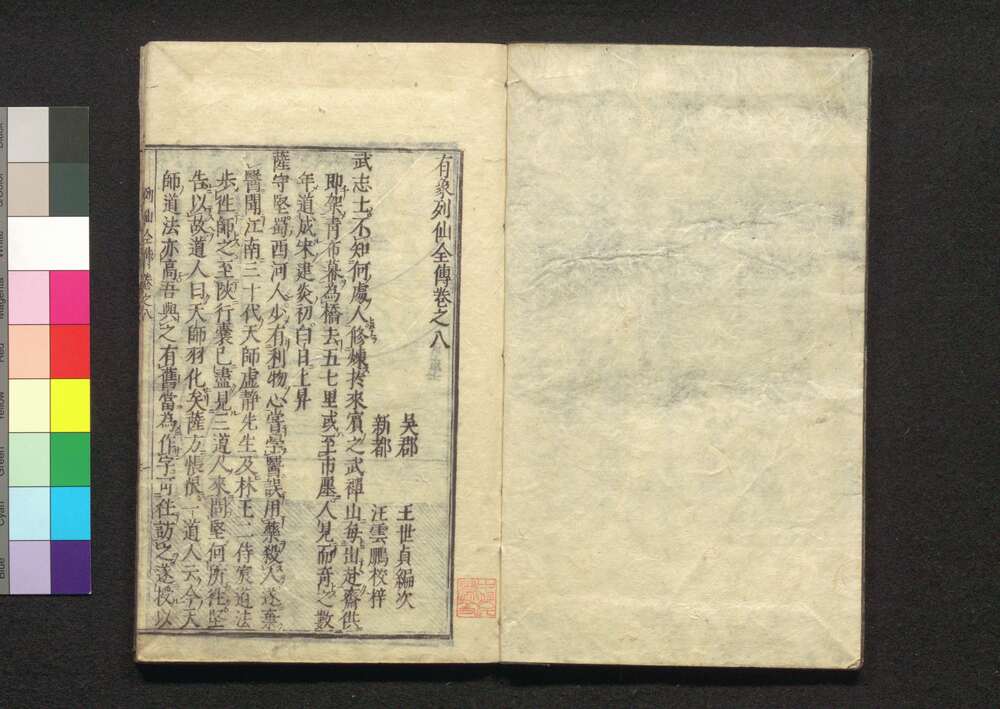 有象列仙全傳卷之八
吳郡 王世貞編次
新都 汪雲鵬校梓
武志士不知何處人修煉於來賓之武禪山每出赴齋供
即架青布幕為橋去五七里或至市廛人見而奇之數
年道成宋建炎初白日上昇
薩守堅蜀西河人少有利物心嘗學醫誤用藥殺人遂棄
醫聞江南三十代天師虛靜先生及林王二侍宸道法
步往師之至陝行囊已盡見三道人來問堅何所往堅
告以故道人曰天師羽化矣薩方悵恨一道人云今天
師道法亦高吾與之有舊當為作字可往訪之遂授以
列仙全傳卷之八